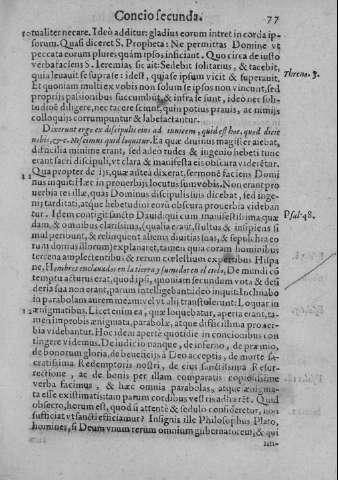 Concio secunda. 77
tualiter necare. Ideò additur: gladius eorum intret in corda ip-
sorum. Quasi diceret S. Propheta: Ne permittas Domine vt
peccata eorum plures quàm ipsos insiciant. Quo circa de iusto
verba faciens S. Ieremias sic ait: Sedebit solitarius, & tacebit,
quia leuauit se supra se: id est, quia se ipsum vicit & superauit.
Threno. 3.
Et quoniam multi ex vobis non solum se ipsos non vincunt, sed
proprijs passionibus succumbūt, & infra se sunt, ideò nec soli-
tudinē diligere, nec tacere sciunt, quin potius prauis, ac nimijs
colloquijs corrumpuntur & labefactantur.
Dixerunt ergo ex discipulis eius ad inuicem, quid est hoc, quod dicit
nobis, &c. Nescimus quid loquitur. Et quæ diuinus magister aiebat,
difficilia minimè erant, sed adeo rudes & ingenio hebeti tunc
erant sacri discipuli, vt clara & manifesta eis obscura viderētur.
Quapropter de ijs, quæ antea dixerat, sermonē faciens Domi-
nus inquit: Hæc in prouerbijs locutus sum vobis. Non erant pro
uerbia res illæ, quas Dominus discipulis suis dicebat, sed inge-
nij tarditati, atque hebetudini eorū obscura prouerbia videban
tur. Idem contigit sancto Dauid: qui cum manifestissima quæ
Psal. 48.
dam, & omnibus clarissima, (qualia erant, stultus & insipiens si
mul peribunt, & relinquent alienis diuitias suas, & sepulchra eo
rum domus illorum) explanaret, tamen quia coram hominibus
terrena amplectentibus & rerum cœlestium expertibus
Hispane, Hombres enclauados en la tierra y sumidos en el cieno, De mundi cō
temptu acturus erat, quod ipsi, quoniam secundum vota & desi
deria sua non erant, parum intelligebant: ideò inquit: Inclinabo
in parabolam aurem meam: vel vt alij transtulerunt: Loquar in
ænigmatibus. Licet enim ea, quæ loquebatur, aperta erant, ta-
men improbis ænigmata, parabolæ, atque difficillima prouer-
bia videbantur. Hoc idem apertè quotidie in concionibus con
tingere videmus. De iudicio nanque, de inferno, de præmio,
de bonorum gloria, de beneficijs à Deo acceptis, de morte sa-
cratissima Redemptoris nostri, de eius sanctissima Resur-
rectione, ac de bonis per illam comparatis copiosissimè
verba facimus, & hæc omnia parabolas, atque ænigma-
ta esse existimatis: tam parum cordibus vestris adhærēt. Quid
obsecro, horum est, quod si attentè & sedulo consideretur, non
sufficiat vt sancti efficiamur? Insignis ille Philosophus Plato,
homines, si Deum vnum rerum omnium gubernatorem, & qui